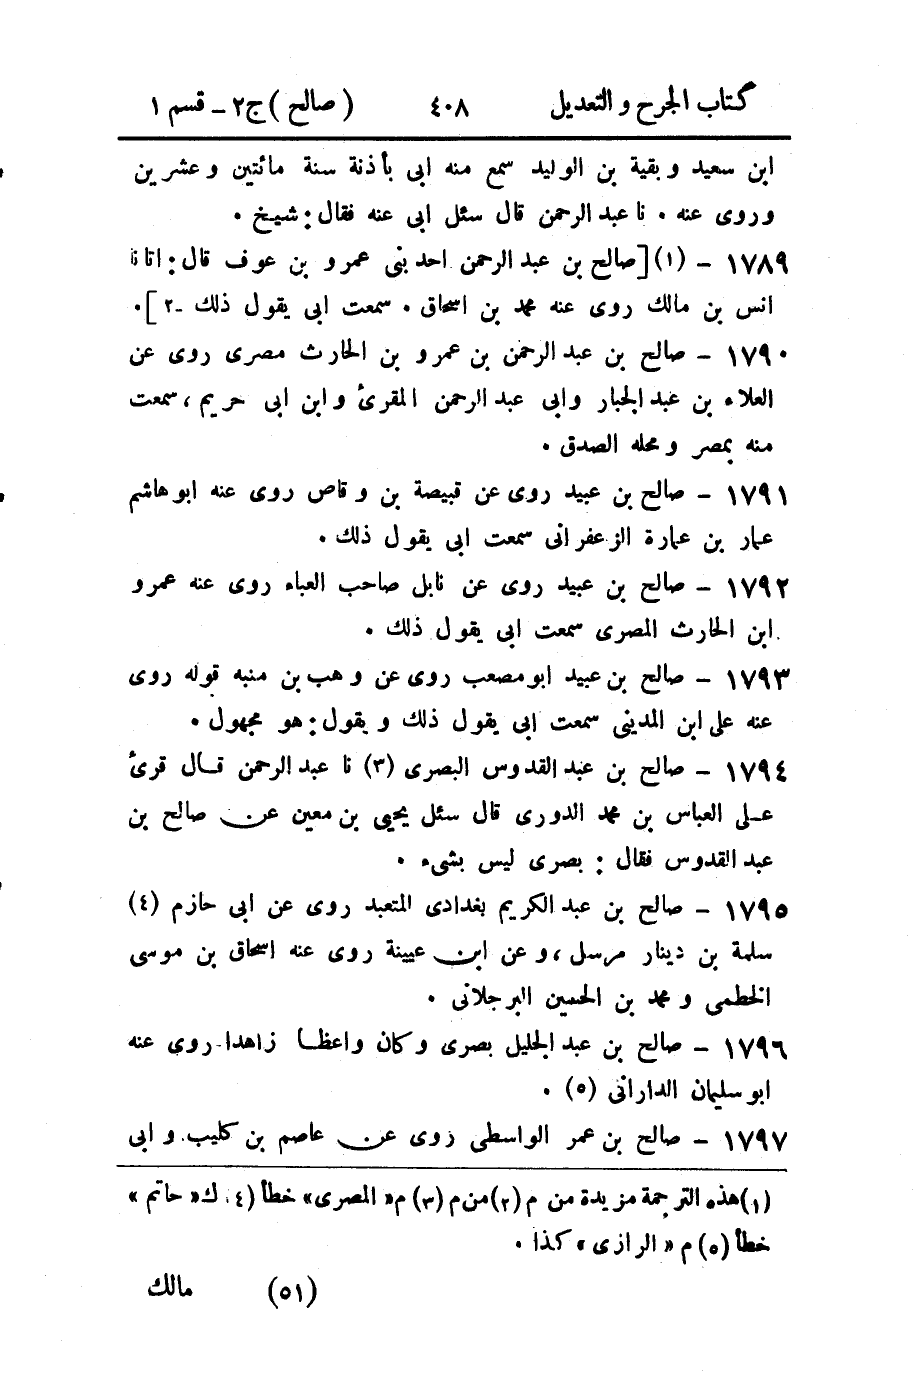 كتاب الجرح والتعديل ٤٠٨ (صالح) ج٢ - قسم ١
ابن سعيد وبقية بن الوليد سمع منه ابى بأذنة سنة مائتين وعشرين
وروى عنه . نا عبد الرحمن قال سئل ابى عنه فقال : شيخ .
١٧٨٩ - (١) [صالح بن عبد الرحمن احد بنى عمرو بن عوف قال : اتانا
انس بن مالك روى عنه محمد بن اسحاق . سمعت ابى يقول ذلك -٢] .
١٧٩٠ - صالح بن عبد الرحمن بن عمرو بن الحارث مصرى روى عن
العلاء بن عبد الجبار وابى عبد الرحمن المقرئ وابن ابى مريم ، سمعت
منه بمصر ومحله الصدق .
١٧٩١ - صالح بن عبيد روى عن قبيصة بن وقاص روى عنه ابو هاشم
عمار بن عمارة الزعفرانى سمعت ابى يقول ذلك .
١٧٩٢ - صالح بن عبيد روى عن نابل صاحب العباء روى عنه عمرو
ابن الحارث المصرى سمعت ابى يقول ذلك .
١٧٩٣ - صالح بن عبيد ابو مصعب روى عن وهب بن منبه قوله روى
عنه على ابن المدينى سمعت ابى يقول ذلك ويقول : هو مجهول .
١٧٩٤ - صالح بن عبد القدوس البصرى (٣) نا عبد الرحمن قال قرئ
على العباس بن محمد الدورى قال سئل يحيى بن معين عن صالح بن
عبد القدوس فقال : بصرى ليس بشىء .
١٧٩٥ - صالح بن عبد الكريم بغدادى المتعبد روى عن ابى حازم (٤)
سلمة بن دينار مرسل ، وعن ابن عيينة روى عنه اسحاق بن موسى
الخطمى ومحمد بن الحسين البرجلانى .
١٧٩٦ - صالح بن عبد الجليل بصرى وكان واعظا زاهدا روى عنه
ابو سليمان الدارانى (٥) .
١٧٩٧ - صالح بن عمر الواسطى روى عن عاصم بن كليب وابى
(١) هذه الترجمة مزيدة من م (٢) من م (٣) م « المصرى » خطأ (٤) ك « حاتم »
خطأ (٥) م « الرازى » كذا .
(٥١) مالك